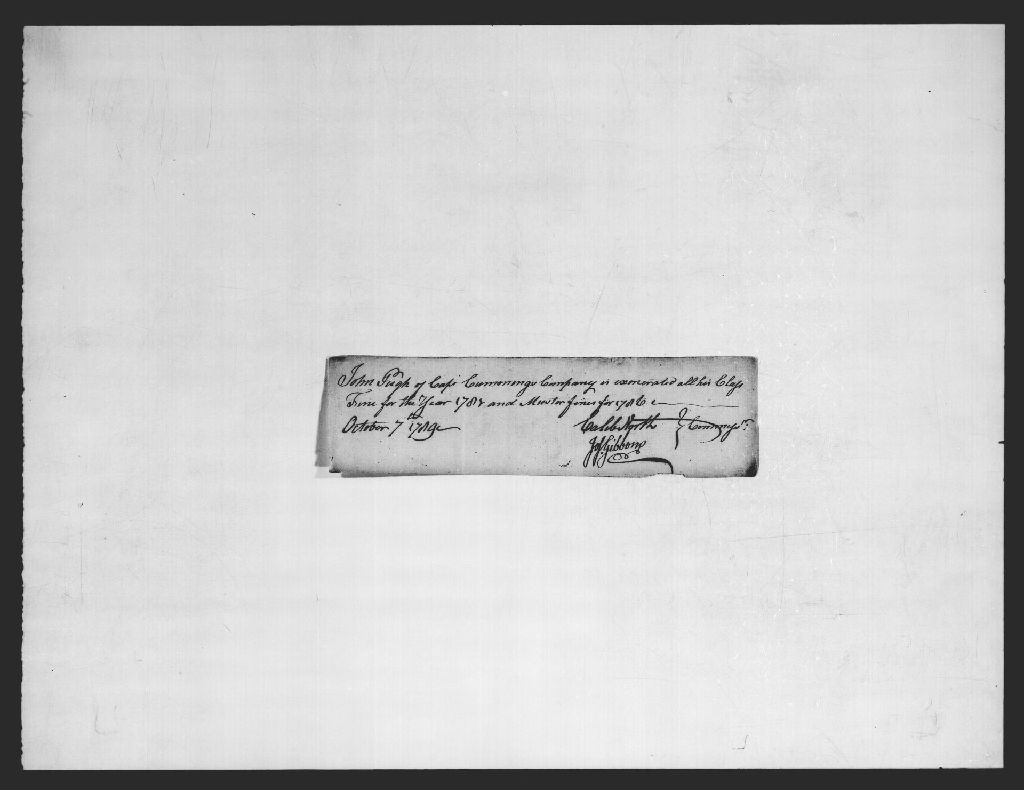 John Pugh of Capt Cummings Company is exonerated all his Class
Fine for the Year 178 and Muster fines for 1786
October 7th 1789
Caleb North } Commissrs
Jas Gibbons